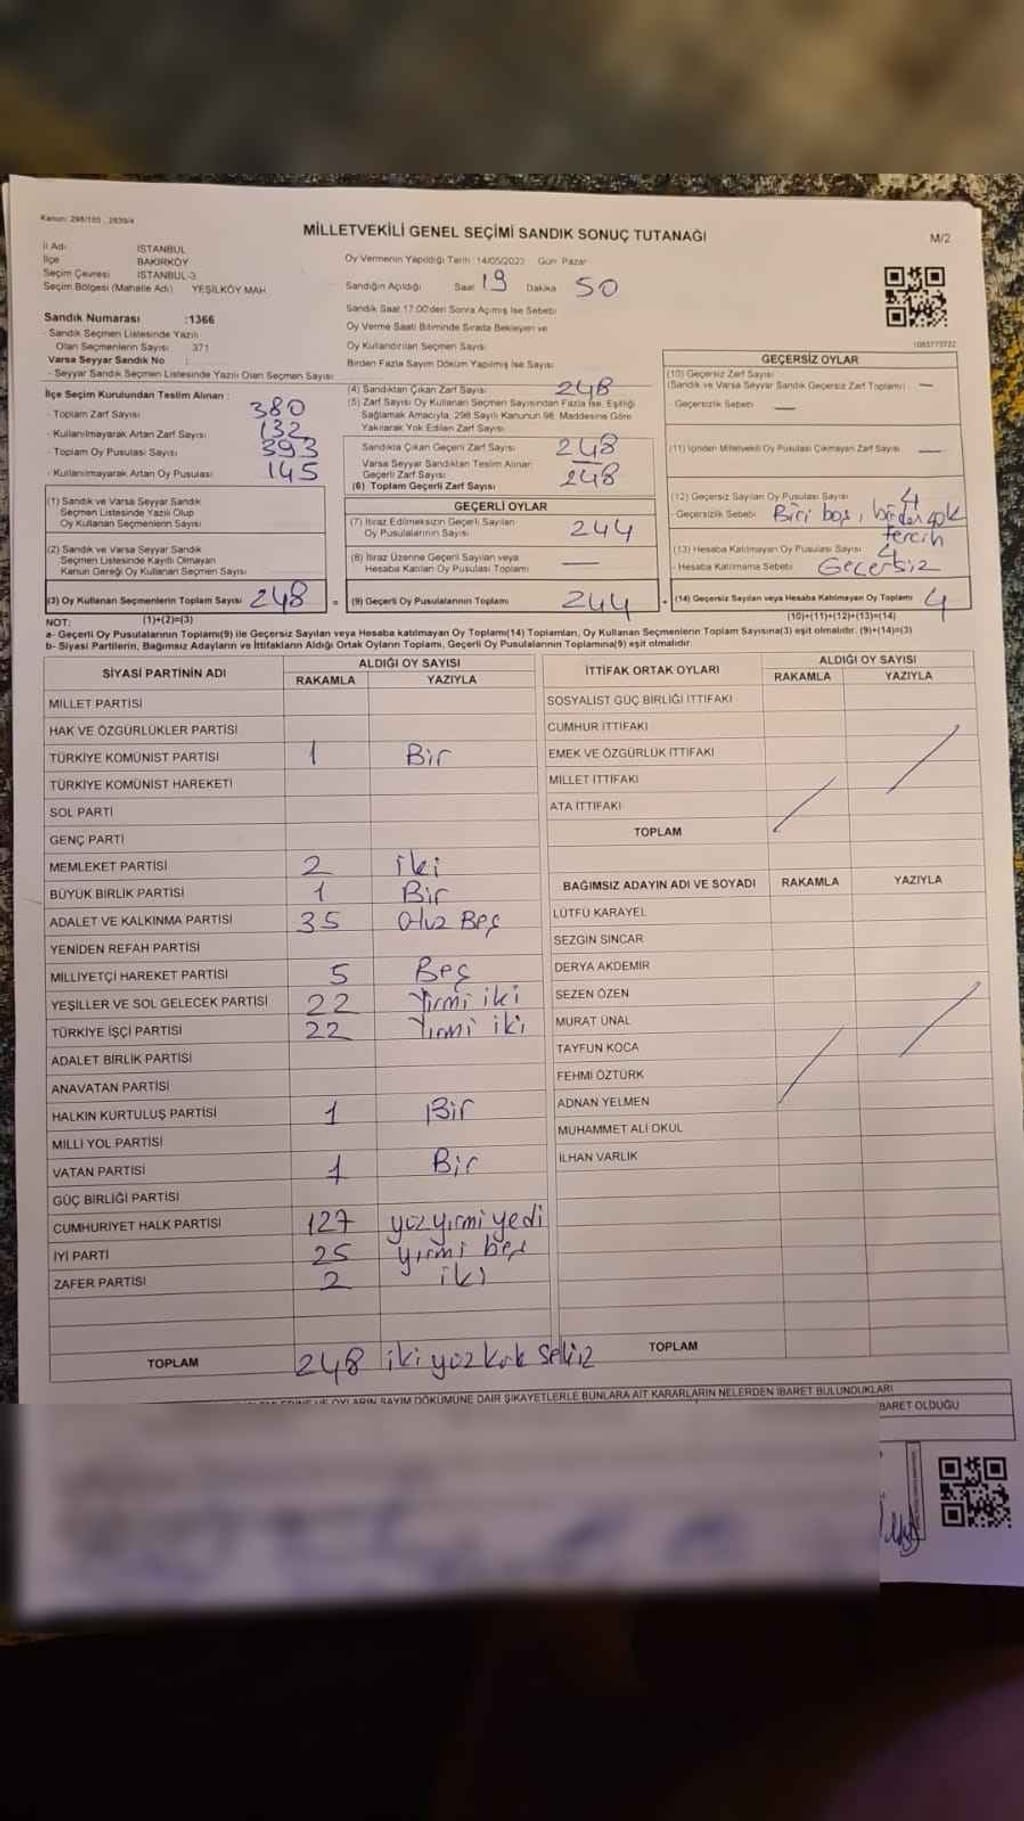 Kanun: 298/105 , 2839/4
MİLLETVEKİLİ GENEL SEÇİMİ SANDIK SONUÇ TUTANAĞI
M/2
İl Adı İSTANBUL
İlçe BAKIRKÖY
Seçim Çevresi İSTANBUL-3
Seçim Bölgesi (Mahalle Adı) YEŞİLKÖY MAH.
Oy Vermenin Yapıldığı Tarih :14/05/2023 Gün Pazar
Sandığın Açıldığı Saat 19 Dakika 50
Sandık Saat 17:00'den Sonra Açmış İse Sebebi
Oy Verme Saati Bitiminde Sırada Bekleyen ve
Oy Kullandırılan Seçmen Sayısı
Birden Fazla Sayım Döküm Yapılmış İse Sayısı
Sandık Numarası :1366
Sandık Seçmen Listesinde Yazılı
Olan Seçmenlerin Sayısı 371
Varsa Seyyar Sandık No :
- Seyyar Sandık Seçmen Listesinde Yazılı Olan Seçmen Sayısı:
İlçe Seçim Kurulundan Teslim Alınan :
- Toplam Zarf Sayısı 380
- Kullanılmayarak Artan Zarf Sayısı 132
- Toplam Oy Pusulası Sayısı 393
- Kullanılmayarak Artan Oy Pusulası 145
(4) Sandıktan Çıkan Zarf Sayısı 248
(5) Zarf Sayısı Oy Kullanan Seçmen Sayısından Fazla İse, Eşitliği
Sağlamak Amacıyla, 298 Sayılı Kanunun 98. Maddesine Göre
Yakılarak Yok Edilen Zarf Sayısı
Sandıkta Çıkan Geçerli Zarf Sayısı 248
Varsa Seyyar Sandıktan Teslim Alınan
Geçerli Zarf Sayısı
(6) Toplam Geçerli Zarf Sayısı 248
GEÇERLİ OYLAR
(7) İtiraz Edilmeksizin Geçerli Sayılan
Oy Pusulalarının Sayısı 244
(8) İtiraz Üzerine Geçerli Sayılan veya
Hesaba Katılan Oy Pusulası Toplamı —
(9) Geçerli Oy Pusulalarının Toplamı 244
1083773722
GEÇERSİZ OYLAR
(10) Geçersiz Zarf Sayısı
(Sandık ve Varsa Seyyar Sandık Geçersiz Zarf Toplamı) : —
Geçersizlik Sebebi : —
(11) İçinden Milletvekili Oy Pusulası Çıkmayan Zarf Sayısı —
(12) Geçersiz Sayılan Oy Pusulası Sayısı 4
Geçersizlik Sebebi Biri boş, birden çok
tercih
(13) Hesaba Katılmayan Oy Pusulası Sayısı 4
- Hesaba Katılmama Sebebi : Geçersiz
(14) Geçersiz Sayılan veya Hesaba Katılmayan Oy Toplamı 4
(10)+(11)+(12)+(13)=(14)
(1) Sandık ve Varsa Seyyar Sandık
Seçmen Listesinde Yazılı Olup
Oy Kullanan Seçmenlerin Sayısı
(2) Sandık ve Varsa Seyyar Sandık
Seçmen Listesinde Kayıtlı Olmayan
Kanun Gereği Oy Kullanan Seçmen Sayısı
(3) Oy Kullanan Seçmenlerin Toplam Sayısı 248
(1)+(2)=(3)
NOT:
a- Geçerli Oy Pusulaları Toplamı(9) ile Geçersiz Sayılan veya Hesaba katılmayan Oy Toplamı(14) Toplamları, Oy Kullanan Seçmenlerin Toplam Sayısına(3) eşit olmalıdır. (9)+(14)=(3)
b- Siyasi Partilerin, Bağımsız Adayların ve İttifakların Aldığı Ortak Oyların Toplamı, Geçerli Oy Pusulalarının Toplamına(9) eşit olmalıdır.
SİYASİ PARTİNİN ADI ALDIĞI OY SAYISI
RAKAMLA YAZIYLA
MİLLET PARTİSİ
HAK VE ÖZGÜRLÜKLER PARTİSİ
TÜRKİYE KOMÜNİST PARTİSİ 1 Bir
TÜRKİYE KOMÜNİST HAREKETİ
SOL PARTİ
GENÇ PARTİ
MEMLEKET PARTİSİ 2 iki
BÜYÜK BİRLİK PARTİSİ 1 Bir
ADALET VE KALKINMA PARTİSİ 35 Otuz Beş
YENİDEN REFAH PARTİSİ
MİLLİYETÇİ HAREKET PARTİSİ 5 Beş
YEŞİLLER VE SOL GELECEK PARTİSİ 22 Yirmi iki
TÜRKİYE İŞÇİ PARTİSİ 22 Yirmi iki
ADALET BİRLİK PARTİSİ
ANAVATAN PARTİSİ
HALKIN KURTULUŞ PARTİSİ 1 Bir
MİLLİ YOL PARTİSİ
VATAN PARTİSİ 1 Bir
GÜÇ BİRLİĞİ PARTİSİ
CUMHURİYET HALK PARTİSİ 127 yüz yirmi yedi
İYİ PARTİ 25 yirmi beş
ZAFER PARTİSİ 2 iki
TOPLAM 248 iki yüz kırk sekiz
İTTİFAK ORTAK OYLARI ALDIĞI OY SAYISI
RAKAMLA YAZIYLA
SOSYALİST GÜÇ BİRLİĞİ İTTİFAKI
CUMHUR İTTİFAKI
EMEK VE ÖZGÜRLÜK İTTİFAKI
MİLLET İTTİFAKI
ATA İTTİFAKI
TOPLAM
BAĞIMSIZ ADAYIN ADI VE SOYADI RAKAMLA YAZIYLA
LÜTFÜ KARAYEL
SEZGİN SİNCAR
DERYA AKDEMİR
SEZEN ÖZEN
MURAT ÜNAL
TAYFUN KOCA
FEHMİ ÖZTÜRK
ADNAN YELMEN
MUHAMMET ALİ OKUL
İLHAN VARLIK
TOPLAM
VE OYLARIN SAYIM DÖKÜMÜNE DAİR ŞİKAYETLERLE BUNLARA AİT KARARLARIN NELERDEN İBARET BULUNDUKLARI
BARET OLDUĞU